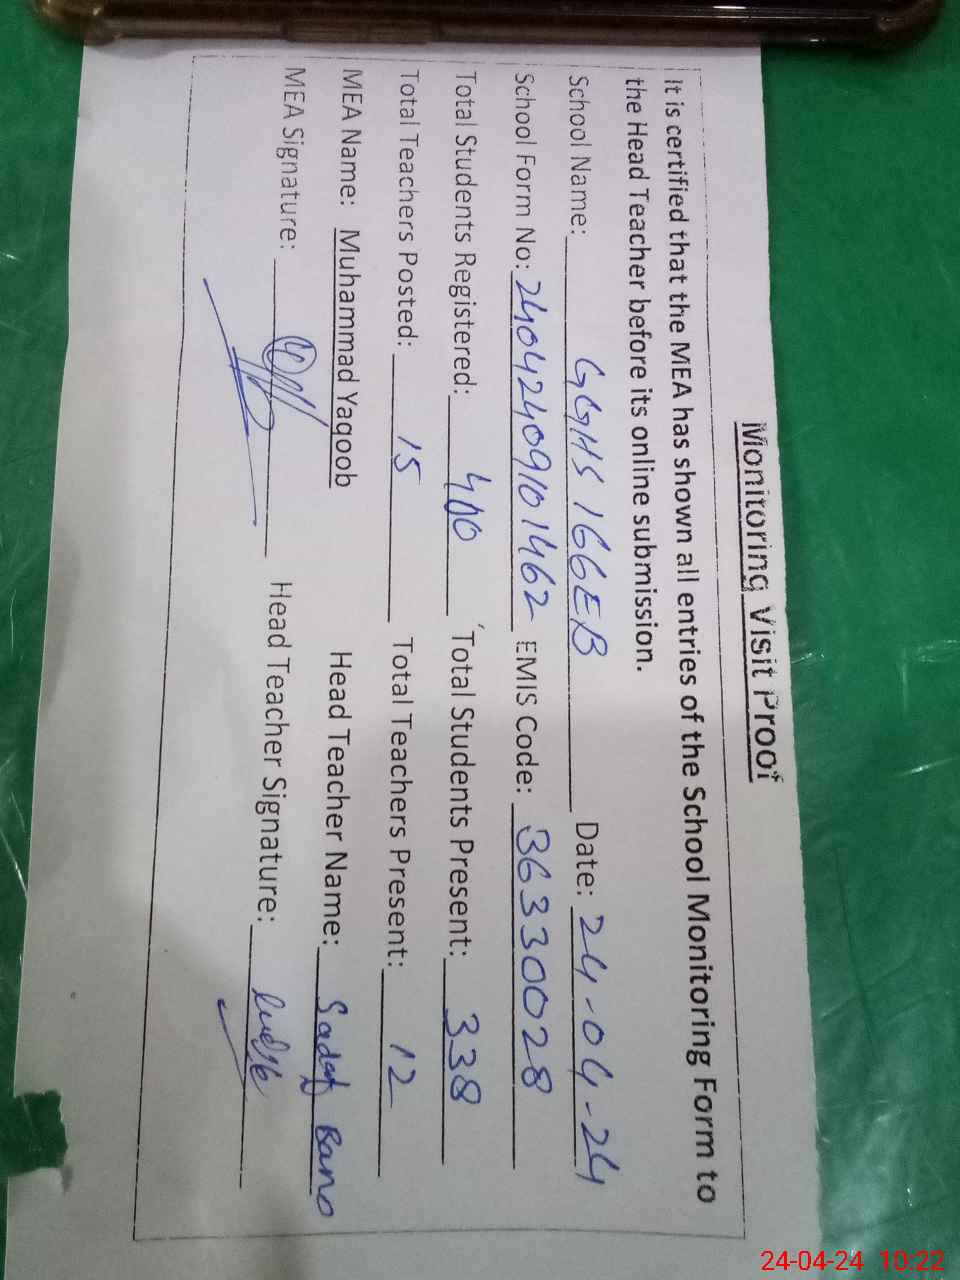 Monitoring Visit Proof
It is certified that the MEA has shown all entries of the School Monitoring Form to
the Head Teacher before its online submission.
School Name: GGHS 166EB Date: 24-04-24
School Form No: 24042409101462 EMIS Code: 36330028
Total Students Registered: 400 Total Students Present: 338
Total Teachers Posted: 15 Total Teachers Present: 12
MEA Name: Muhammad Yaqoob Head Teacher Name: Sadaf Bano
MEA Signature: Head Teacher Signature:
24-04-24 10:22